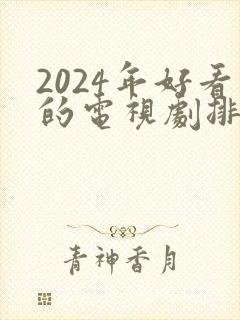 2024年好看
的電視劇排
青神香月